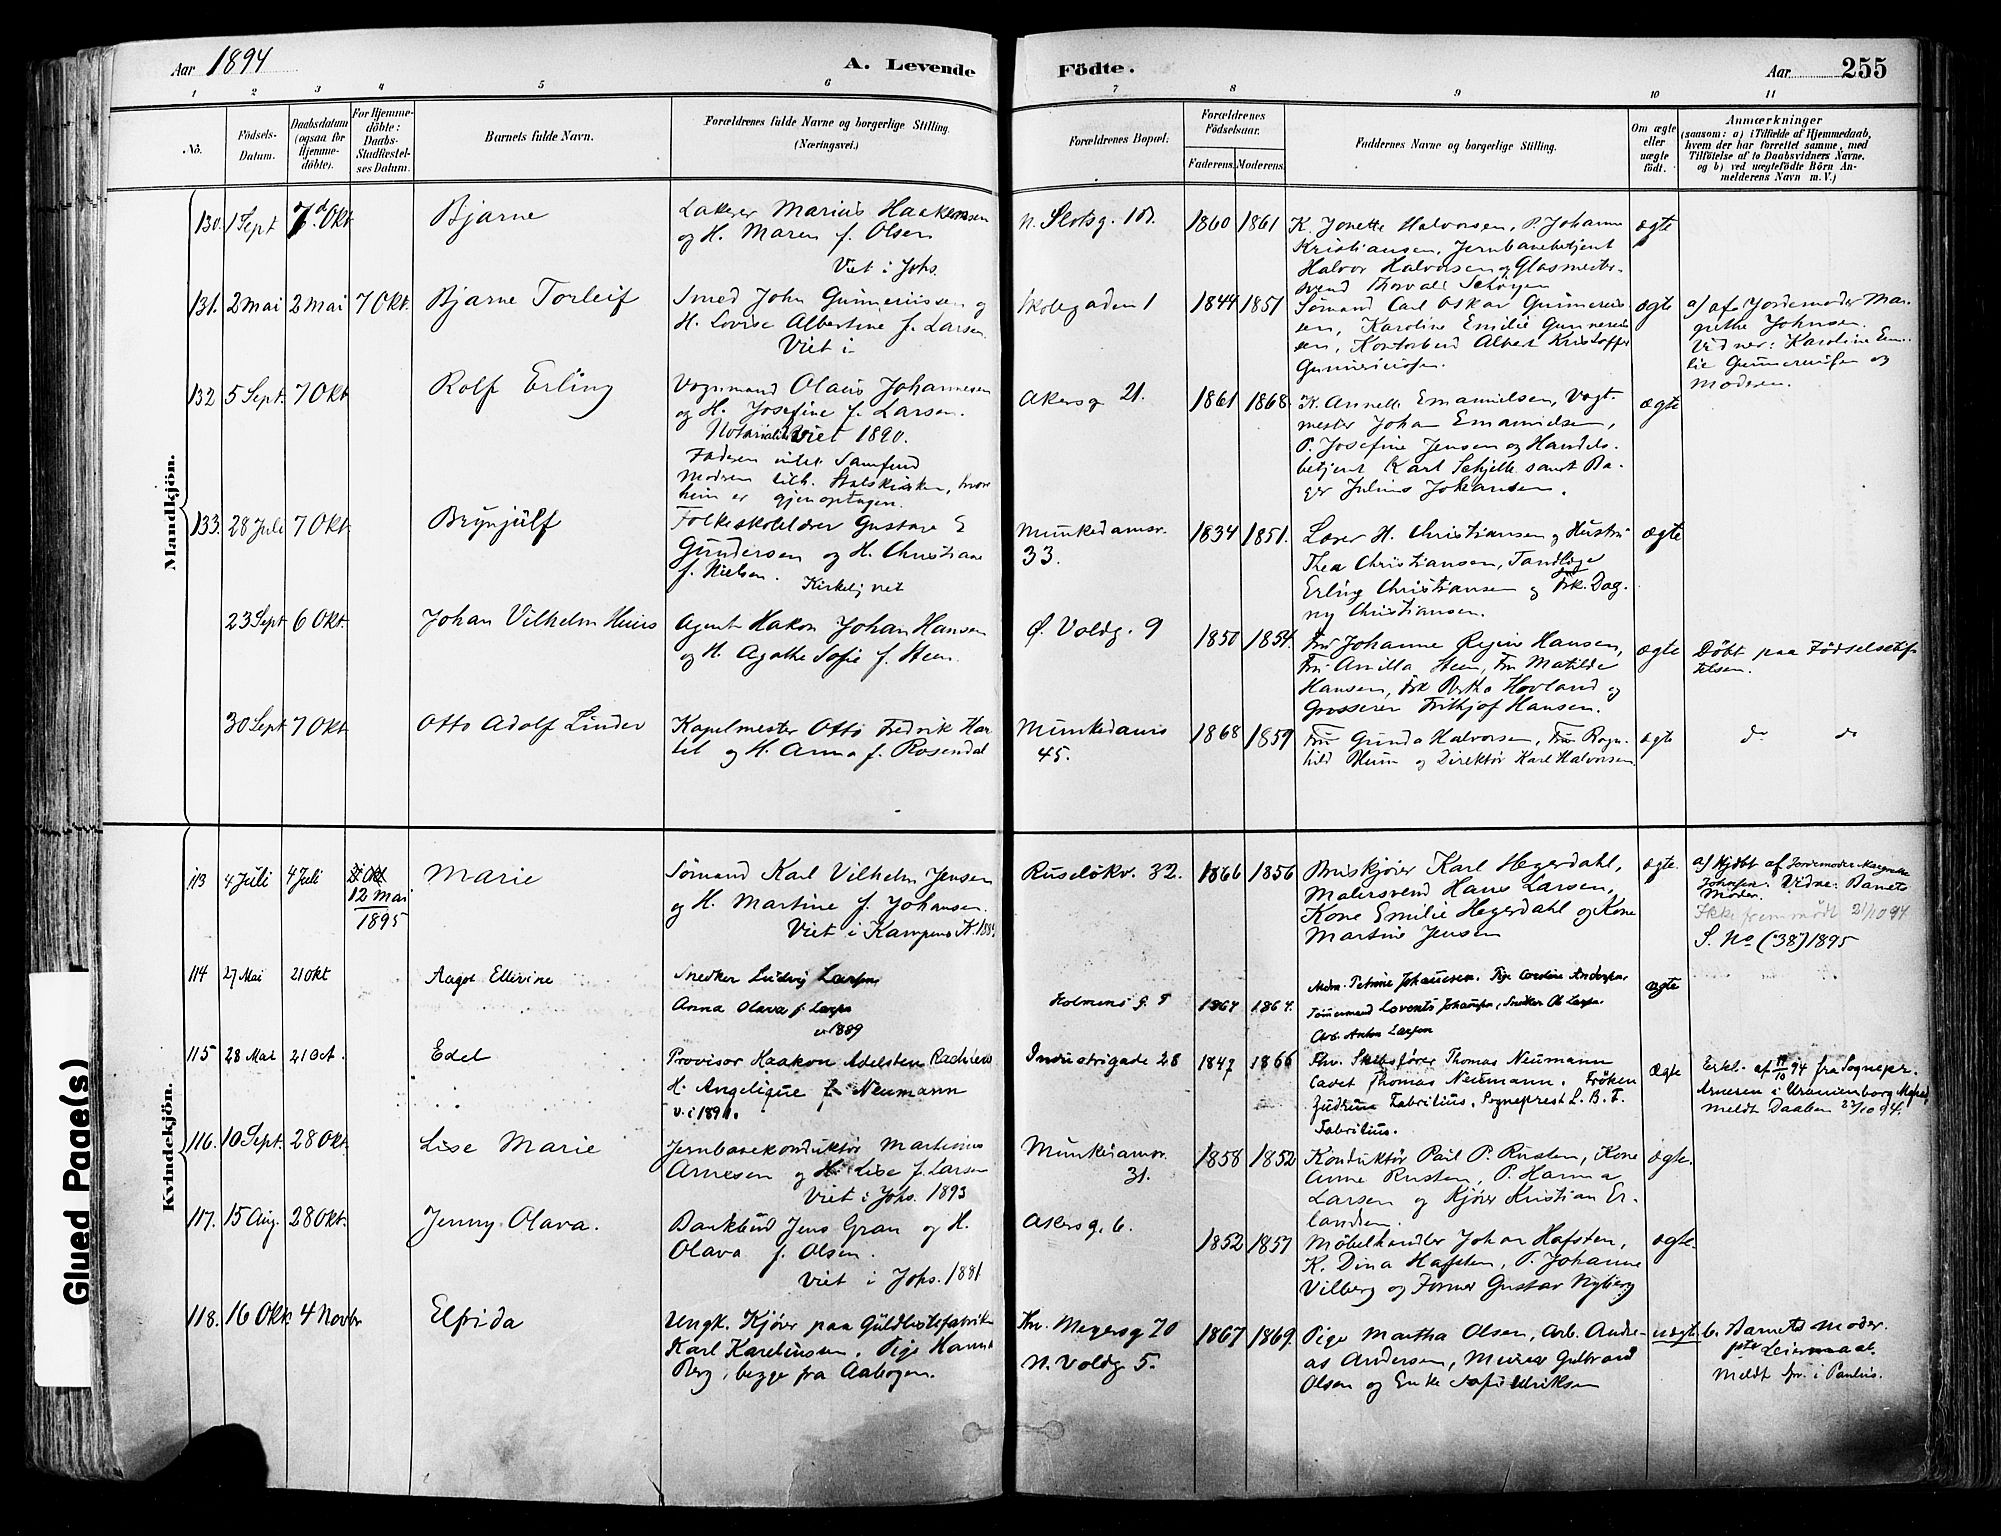 Aar 1894
A. Levende
Födte.
Aar 255
1 2 3 4 5 6 7 8 9 10 11
No.
Födsels-
Datum.
Daabsdatum
(ogsaa for
Hjemme-
döbte).
For Hjemme-
döbte:
Daabs-
Stadfæstel-
ses Datum.
Barnets fulde Navn.
Forældrenes fulde Navne og borgerlige Stilling.
(Næringsvei.)
Forældrenes Bopæl.
Forældrenes
Födselsaar.
Faderens. Moderens.
Faddernes Navne og borgerlige Stilling.
Om ægte
eller
uægte
födt.
Anmærkninger
(saasom: a) i Tilfælde af Hjemmedaab,
hvem der har forrettet samme, med
Tilföielse af to Daabsvidners Navne.
og b) ved uægtefödte Börn An-
melderens Navn m. V.)
Mandkjön.
130. 1 Sept 7d. Okt Bjarne
Lakerer Marius Haakensen
og H. Maren f. Olsen
Viet i Johs.
N. Slotsg. 1860 1861
K. Jonette Halvorsen, P. Johanne
Kristiansen, Jernbanebetjent
Halvor Halvorsen og Glasmester-
svend Thorvald
ægte
131. 2 Mai 2 Mai 7 Okt. Bjarne Torleif
Smed John Gunnerussen og
H. Lovise Albertine f. Larsen.
Viet i
Skolegaden 1 1844 1851
Sømand Carl Oskar Gunnerus-
sen, Karoline Emilie Gunnerus-
sen, Kontorbud Albert Kristoffer
Gunnerussen.
ægte
a) af Jordemoder Mar-
grethe Johnsen.
Vidner: Karoline Emi-
lie Gunnerussen og
Moderen.
132 5 Sept. 7 Okt. Rolf Erling
Vognmand Olaus Johannesen
og H. Josefine f. Larsen.
Notarialiter Viet 1890.
Faderen intet Samfund
Moderen tilh. Statskirken, hvor
hun er gjenoptagen.
Akersg 21. 1861 1868.
K. Annette Emanuelsen, Vagt-
mester Johan Emanuelsen,
P. Josefine Jensen og Handels-
betjent Karl samt Ba-
ger Julius Johansen.
ægte
133. 28 Juli 7 Okt. Brynjulf
Folkeskolelærer Gustav E
Gundersen og H. Christiane
f. Nielsen.
Kirkelig viet
Munkedamsv.
33.
1834 1851.
Lærer H. Christiansen og Hustru
Thea Christiansen, Tandlæge
Erling Christiansen og Frk. Dag-
ny Christiansen.
ægte
23 Sept 6 Okt. Johan Vilhelm
Agent Hakon Johan Hansen
og H. Agathe Sofie f. Steen.
Ø. Voldg. 9 1850 1854.
Fru Johanne Regine Hansen,
Fru Amilla Steen, Fru Matilde
Hansen, Frk Hovland og
Grosserer Frithjof Hansen.
ægte
Döbt paa Födselsstif-
telsen.
30 Sept 7 Okt. Otto Adolf Linder
Kapelmester Otto Fredrik Har-
tel og H. Anna f. Rosendal
Munkedamsv
45.
1868 1859
Fru Gunda Halvorsen, Fru Ragn-
hild og Direktør Karl Halvorsen
ægte
do do
Kvindekjön.
113 4 Juli 4 Juli 12 Mai
1895
Marie
Sømand Karl Vilhelm Jensen
og H. Martine f. Johansen.
Viet i Kampens K.
Ruseløkv. 32. 1866 1856
Karl Hegerdahl,
Malersvend Hans Larsen,
Kone Emilie Hegerdahl og Kone
Martine Jensen
ægte.
a) Hjdöbt af Jordemoder
Johnsen. Vidne: Barnets
Moder.
Ikke fremmødt 21/10 94
S. No (38) 1895
114 27 Mai 21 Okt Aagot Ellevine
Snedker Ludvig Larsen
Anna Olava f. Larsen
v 1889
Holmens g. 1867 1864.
Mdm. Petrine Johannesen. Pige Caroline Andersen.
Tømmermand Lorents Johansen, Snedker Larsen.
Arb. Anton Larsen
ægte
115 28 Mai 21 Oct. Edel
Provisor Haakon Adelsten
H. Angelique f. Neumann
Industrigade 28 1847 1866
Fhv. Skibsfører Thomas Neumann
Cadet Thomas Neumann. Frøken
Gudrun Fabritius, Sogneprest L. B. F.
Fabritius.
Ægte
Erkl. af 94 fra Sognepr.
Arnesen i Uranienborg
meldt Daaben 23/10 94.
116. 10 Sept. 28 Okt. Lise Marie
Jernbanekonduktør Martinius
Arnesen og H. Lise f. Larsen
Viet i Johs. 1893
Munkedamsv.
31.
1858 1852
Konduktør Paul P. Rusten, Kone
Anne Rusten, P. Hanna
Larsen og Kjører Kristian Er-
landsen.
ægte.
117. 15 Aug. 28 Okt. Jenny Olava.
Bankbud Jens Gran og H.
Olava f. Olsen.
Viet i Johs. 1881
Akersg. 6. 1852 1857
Møbelhandler Johan Hafsten,
K. Dina Hafsten, P. Johanne
Vilberg og Former Gustav Nyberg
ægte.
118. 16 Okt. 4 Novbr Elfrida
Ungk. Kjører paa Guldlistefabrik
Karl Karelinssen, Pige
Berg, begge fra Aabogen.
Thv. Meyersg 70
N. Voldg 5.
1867 1869.
Pige Martha Olsen, Arb. Andre-
as Andersen, Murer Gulbrand
Olsen og Enke
uægte
b. Barnets Moder.
Leiermaal.
Meldt fvr. i Paulus.
Glued Page(s)